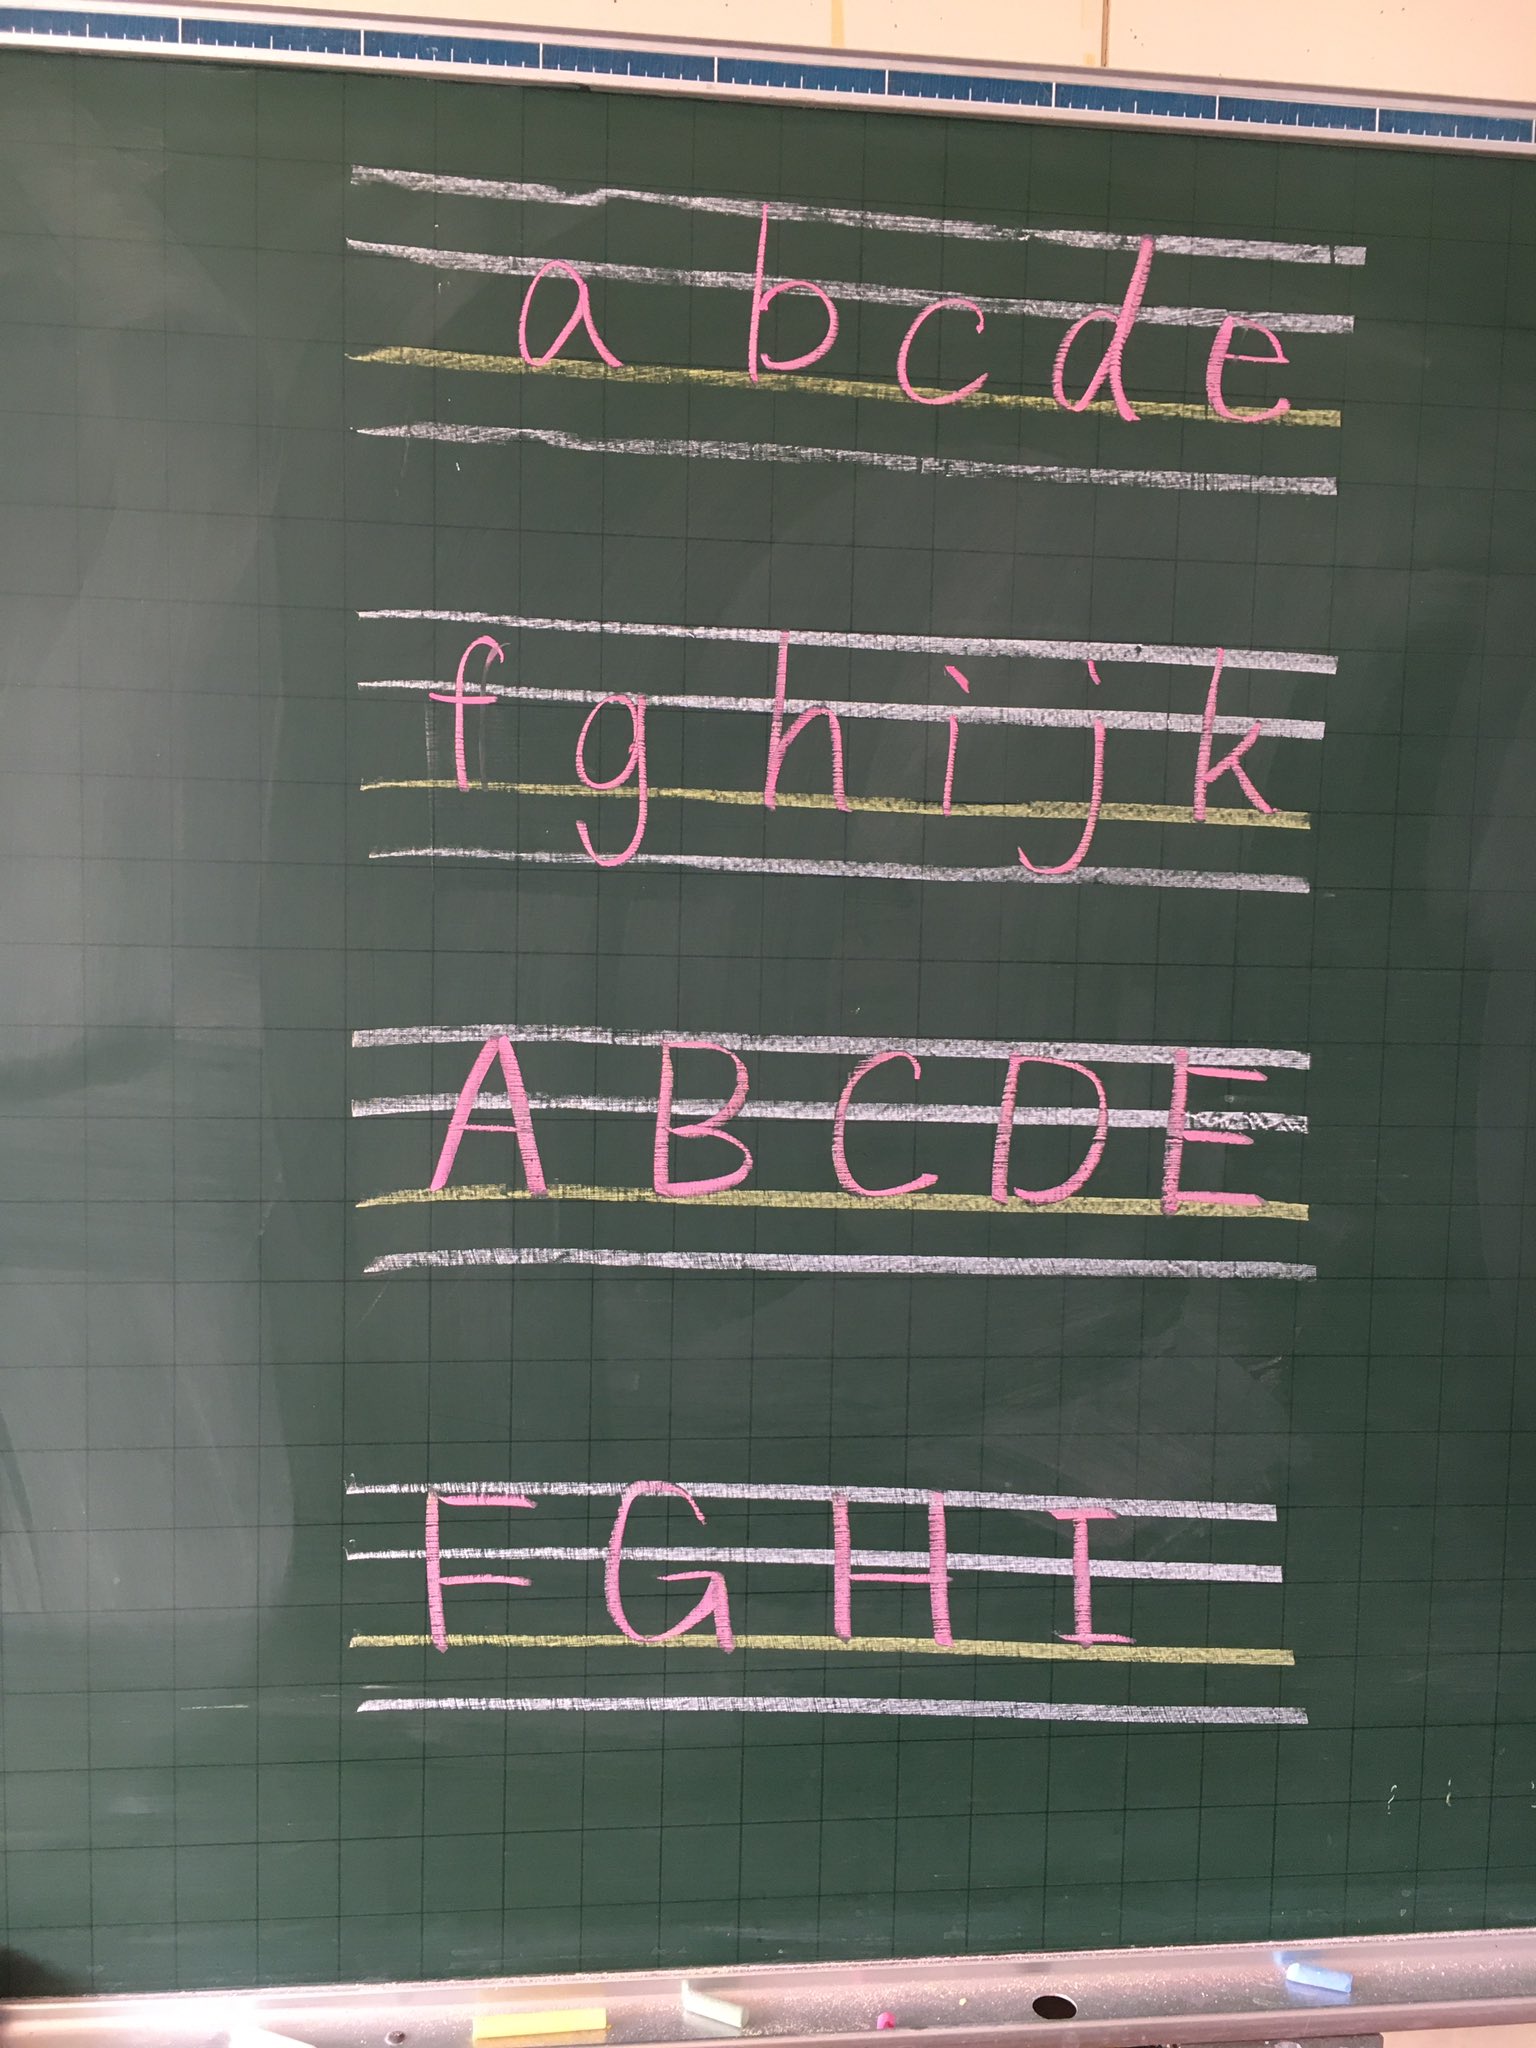 a b c d e
f g h i j k
A B C D E
F G H I